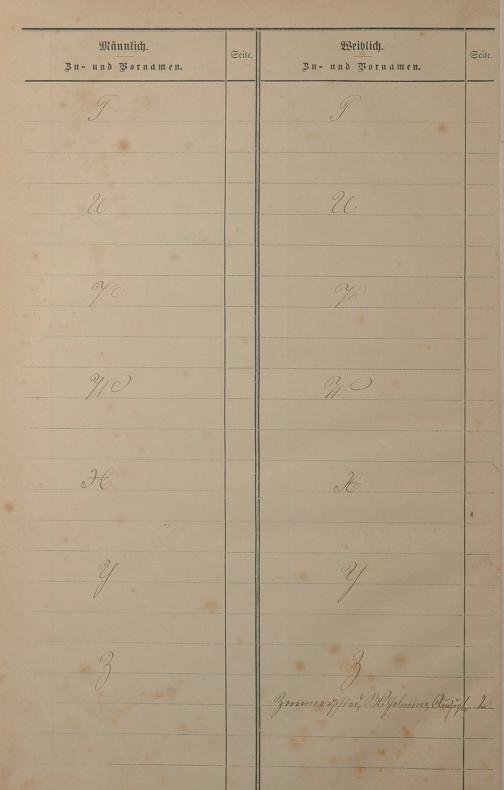 Männlich. Weiblich.
Zu- und Vornamen. Seite. Zu- und Vornamen. Seite.
T T
U U
V V
W W
X X
Y Y
Z Z
Zimmerschied, Wilhelmine, Auguste 2